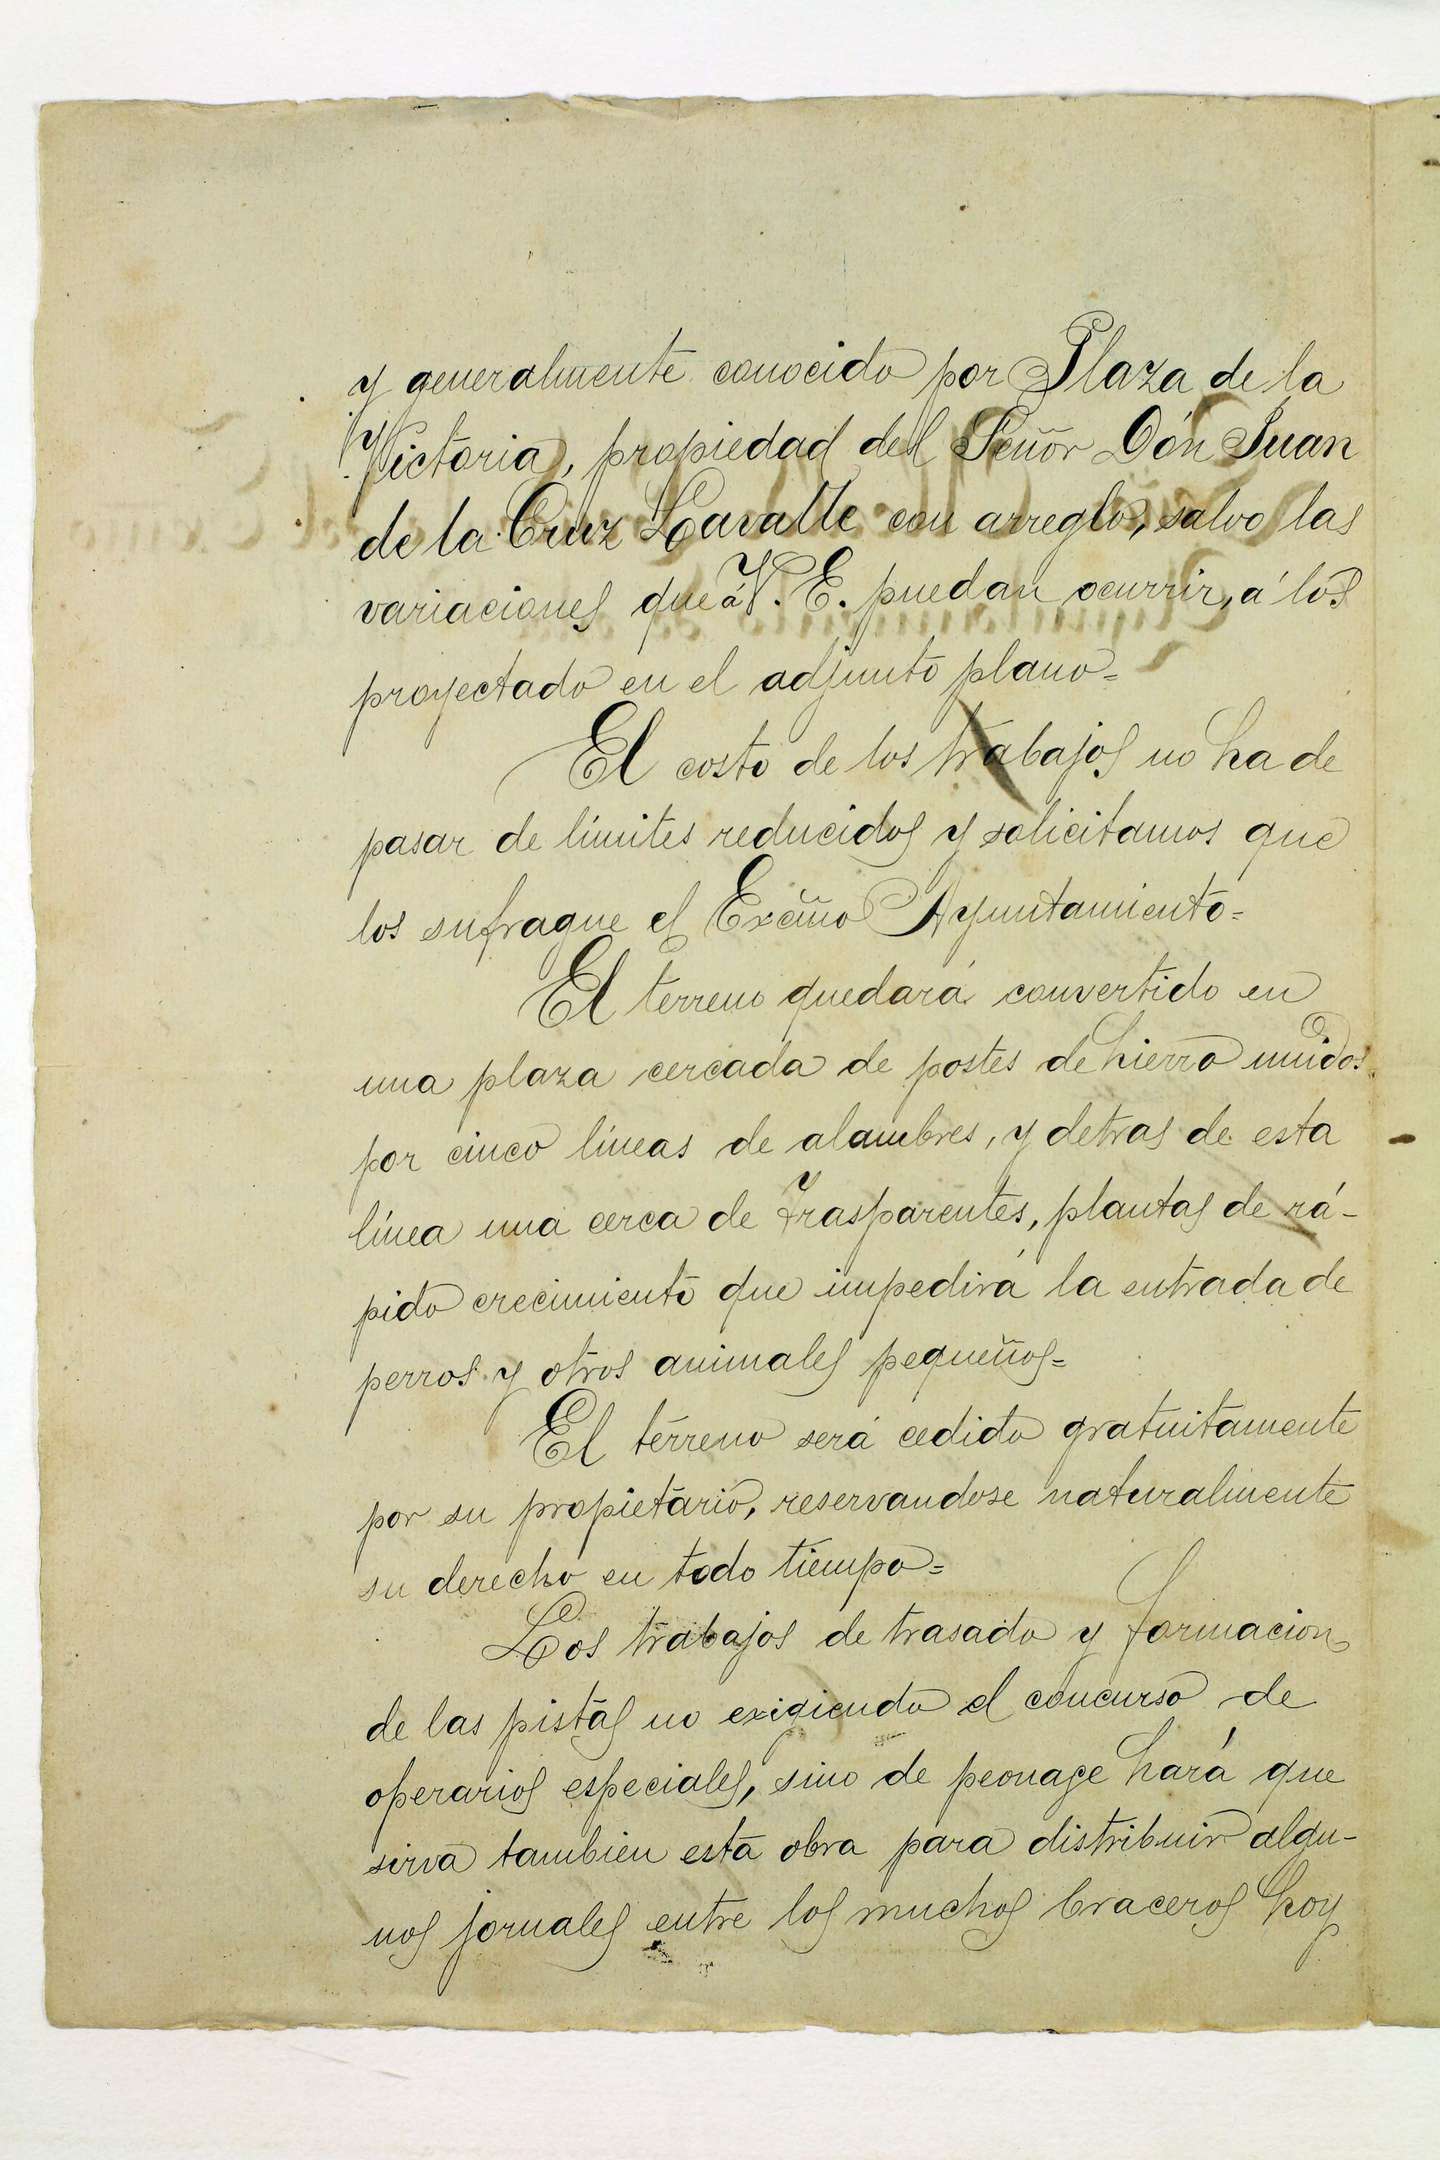 y generalmente conocido por Plaza de la
Victoria, propiedad del Señor Dón Juan
de la Cruz Lavalle con arreglo, salvo las
variaciones que á V. E. puedan ocurrir, á los
proyectado en el adjunto plano=
El costo de los trabajos no ha de
pasar de límites reducidos y solicitamos que
los sufrague el Excmo Ayuntamiento=
El terreno quedará convertido en
una plaza cercada de postes de hierro unidos
por cinco líneas de alambres, y detras de esta
línea una cerca de Trasparentes, plantas de rá-
pido crecimiento que impedirá la entrada de
perros y otros animales pequeños=
El terreno será cedido gratuitamente
por su propietario, reservandose naturalmente
su derecho en todo tiempo=
Los trabajos de trasado y formacion
de las pistas no exigiendo el concurso de
operarios especiales, sino de peonage hará que
sirva tambien esta obra para distribuir algu-
nos jornales entre los muchos braceros hoy